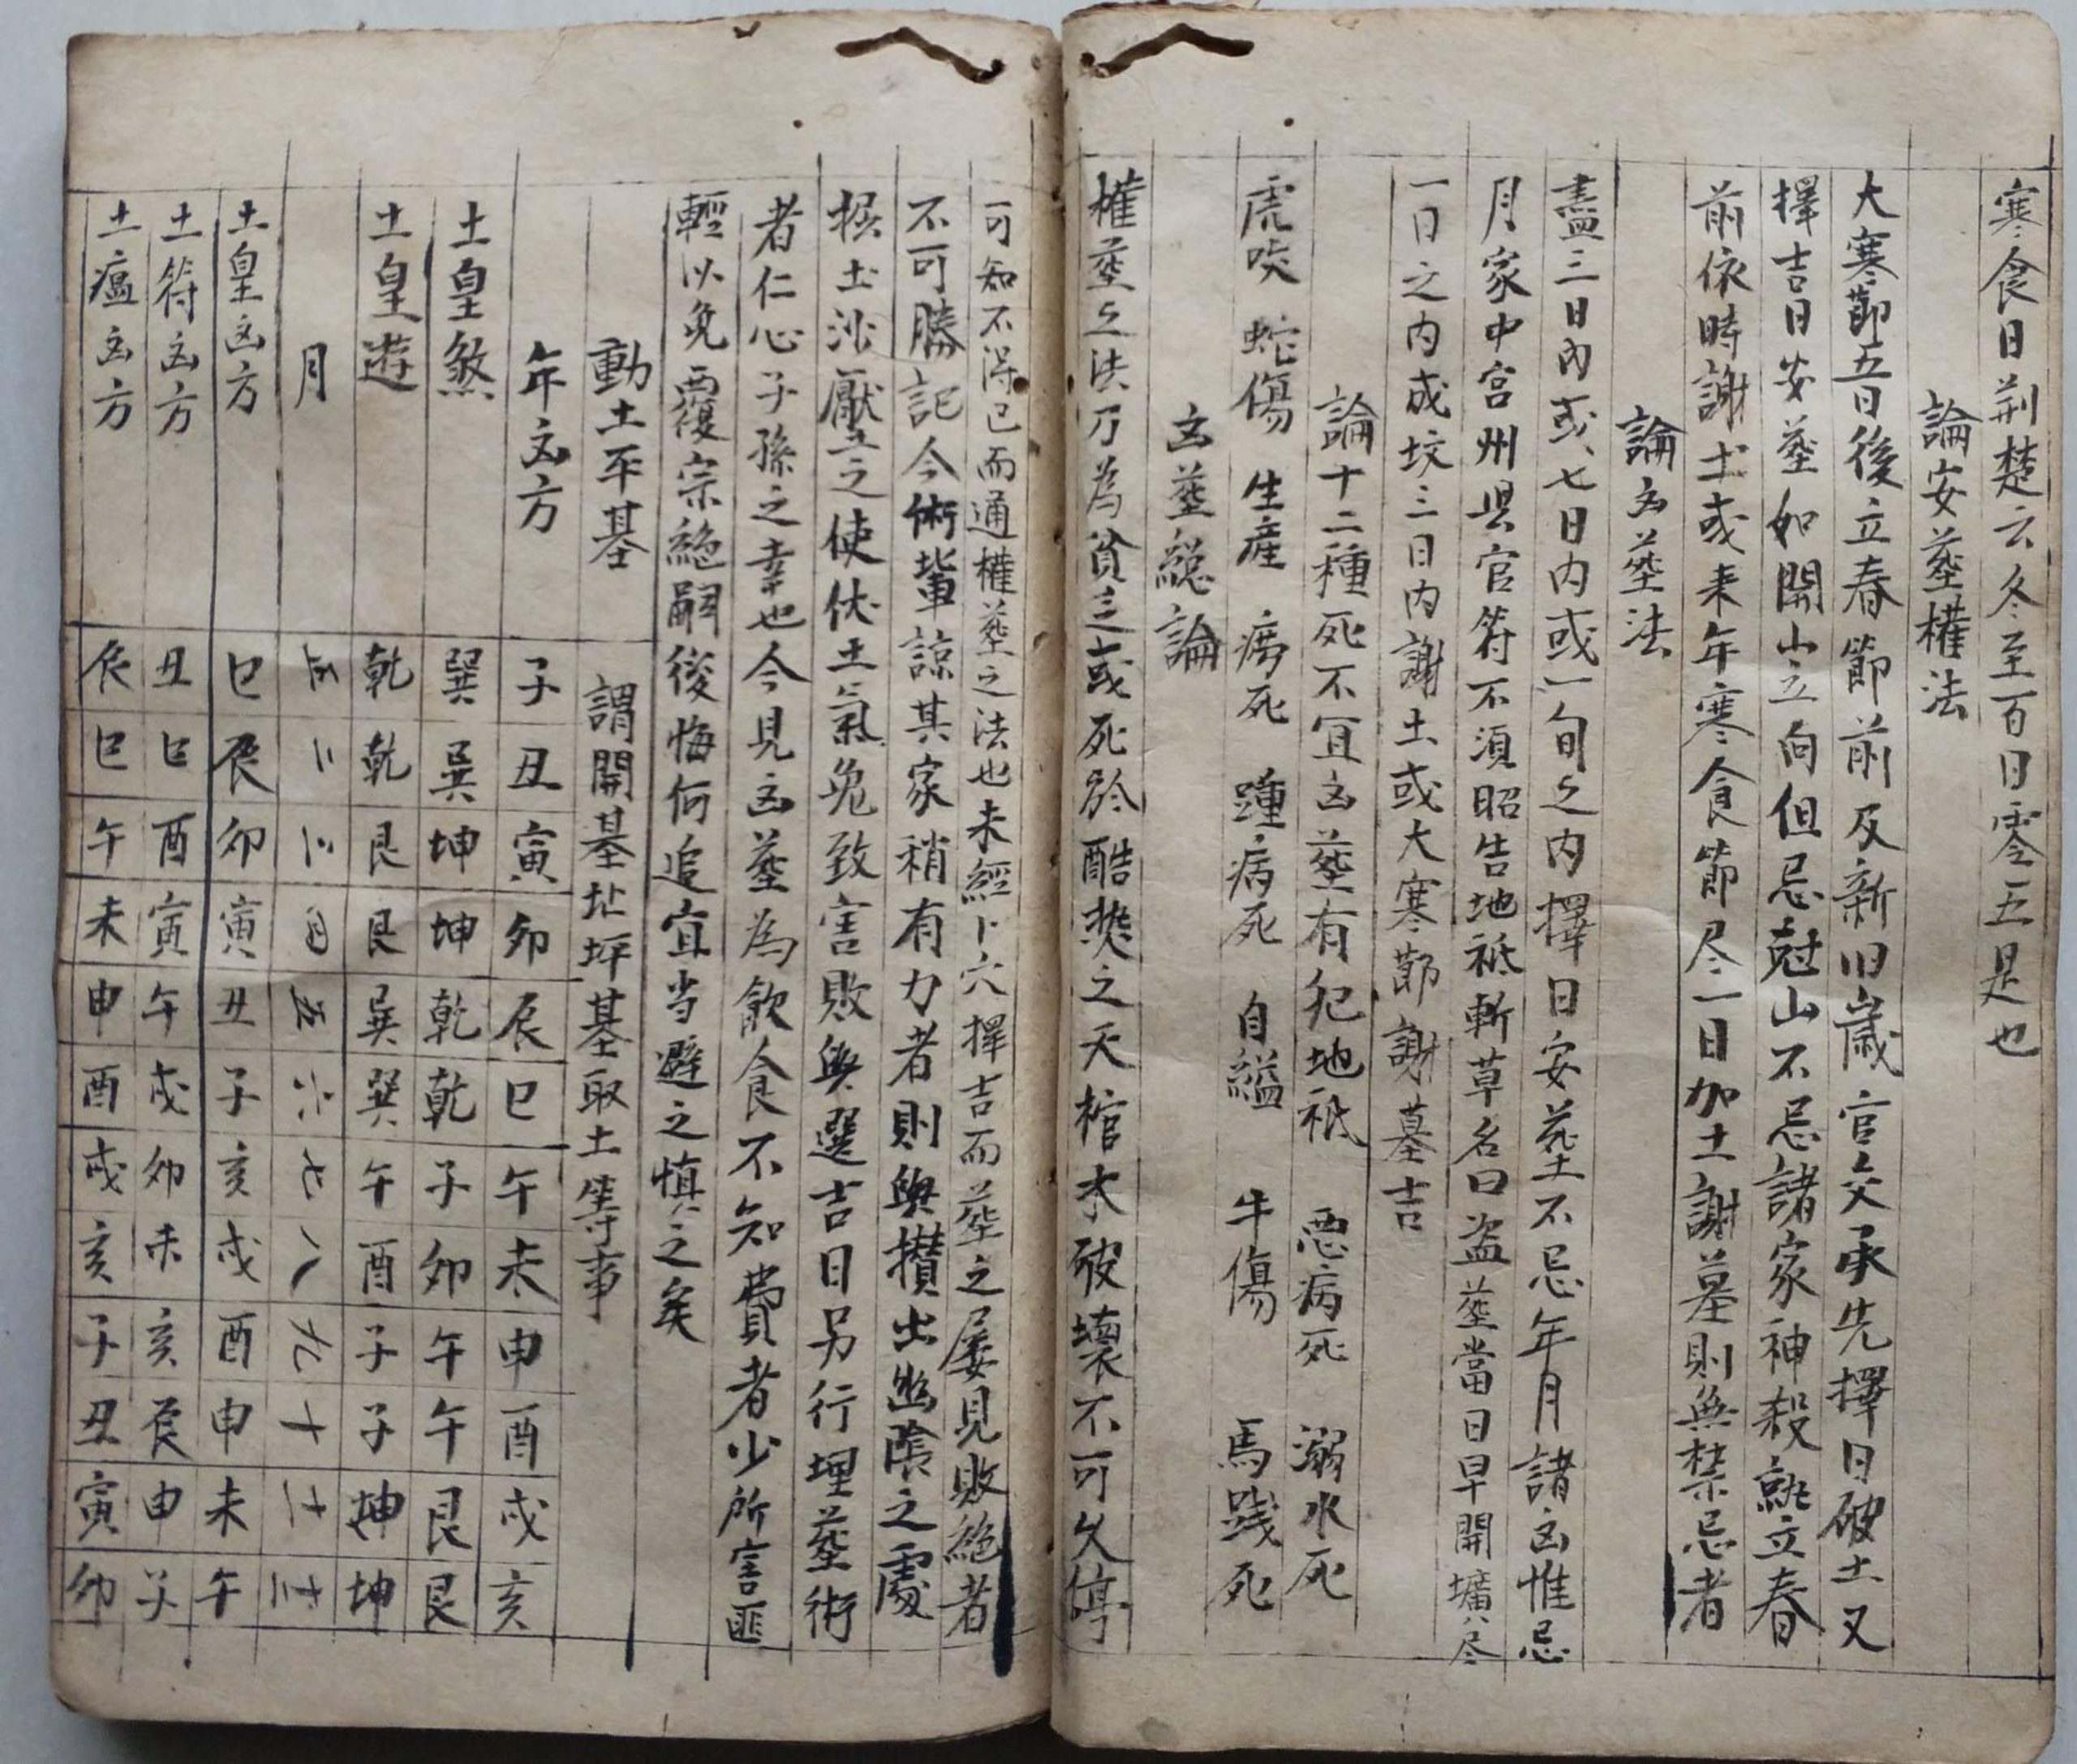 寒食日荆楚云冬至百日零五是也
論安葬權法
大寒節五日後立春節前及新旧歲官交承先擇日破土又
擇吉日安葬如開山立向但忌尅山不忌諸家神殺就立春
前依時謝土或来年寒食節尽一日加土謝墓則無禁忌者
論凶葬法
盡三日內或七日內或一旬之內擇日安葬不忌年月諸凶惟忌
月家中宫州县官符不須昭告地祗斬草名曰盗葬當日早開壙尽
一日之内成坟三日内謝土或大寒節謝墓吉
論十二種死不宜凶葬有犯地祗 惡病死 溺水死
虎咬 蛇傷 生產 癆死 踵病死 自縊 牛傷 馬践死
凶葬総論
權葬之法乃為貧之或死於酷𤍠之天棺木破壞不可久停
可知不得已而通權葬之法也未經卜穴擇吉而葬之屡見敗絶者
不可勝記今術輩諒其家稍有力者則與攢出幽陰之處
挨土沙厭之使伏土氣免致害敗與選吉日另行埋葬術
者仁心子孫之幸也今見凶葬為飲食不知費者少所害匪
輕以免覆宗絶嗣後悔何追宜当避之慎之矣
動土平基 謂開基址坪基取土等事
年凶方 子 丑 寅 卯 辰 巳 午 未 申 酉 戌 亥
土皇煞 巽 巽 坤 坤 乾 乾 子 卯 午 午 艮 艮
土皇遊 乾 乾 艮 艮 巽 巽 午 酉 子 子 坤 坤
月 正 二 三 四 五 六 七 八 九 十 十一 十二
土皇凶方 巳 辰 卯 寅 丑 子 亥 戌 酉 申 未 午
土符凶方 丑 巳 酉 寅 午 戌 卯 未 亥 辰 申 子
土瘟凶方 辰 巳 午 未 申 酉 戌 亥 子 丑 寅 卯